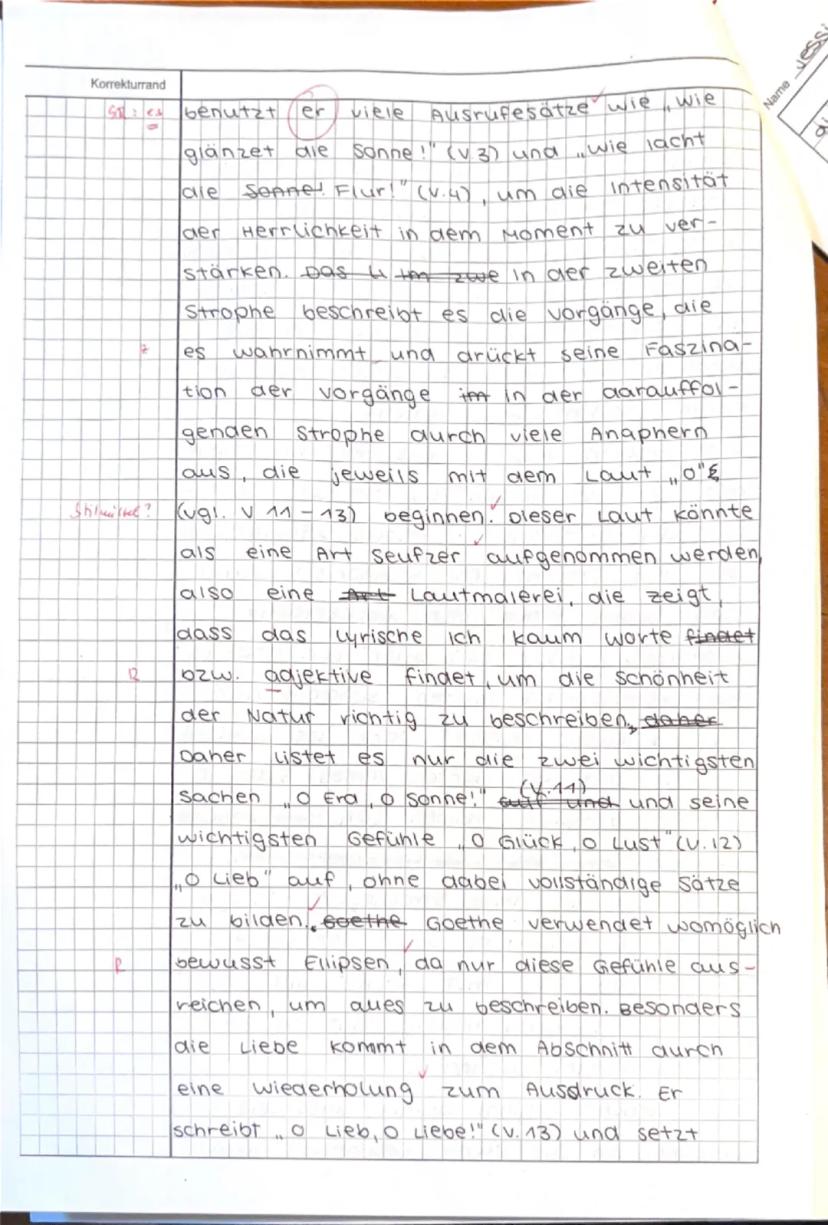 Name Jessi
Korrekturrand
benutzt er viele Ausrufesätze wie „wie
glänzet die Sonne!" (V 3) und „wie lacht
die Sonne! Flur!" (V.4), um die Intensität
der Herrlichkeit in dem Moment zu ver-
stärken. Das im zwe in der zweiten
Strophe beschreibt es die Vorgänge, die
Z es wahrnimmt und drückt seine Faszina-
tion der Vorgänge im in der darauffol-
genden Strophe durch viele Anaphern
aus, die jeweils mit dem Laut „O"
Stilmittel? (vgl. V 11-13) beginnen. Dieser Laut könnte
als eine Art Seufzer aufgenommen werden,
also eine Art Lautmalerei, die zeigt,
dass das lyrische Ich kaum Worte findet
R bzw. adjektive findet, um die Schönheit
der Natur richtig zu beschreiben, daher
Daher listet es nur die zwei wichtigsten
Sachen „O Erd, O Sonne!" (V.11) auf und und seine
wichtigsten Gefühle „O Glück, O Lust" (V.12)
„O Lieb" auf, ohne dabei vollständige Sätze
zu bilden. Goethe Goethe verwendet womöglich
R bewusst Ellipsen, da nur diese Gefühle aus-
reichen, um alles zu beschreiben. Besonders
die Liebe kommt in dem Abschnitt durch
eine Wiederholung zum Ausdruck. Er
schreibt „O Lieb, O Liebe!" (V.13) und setzt